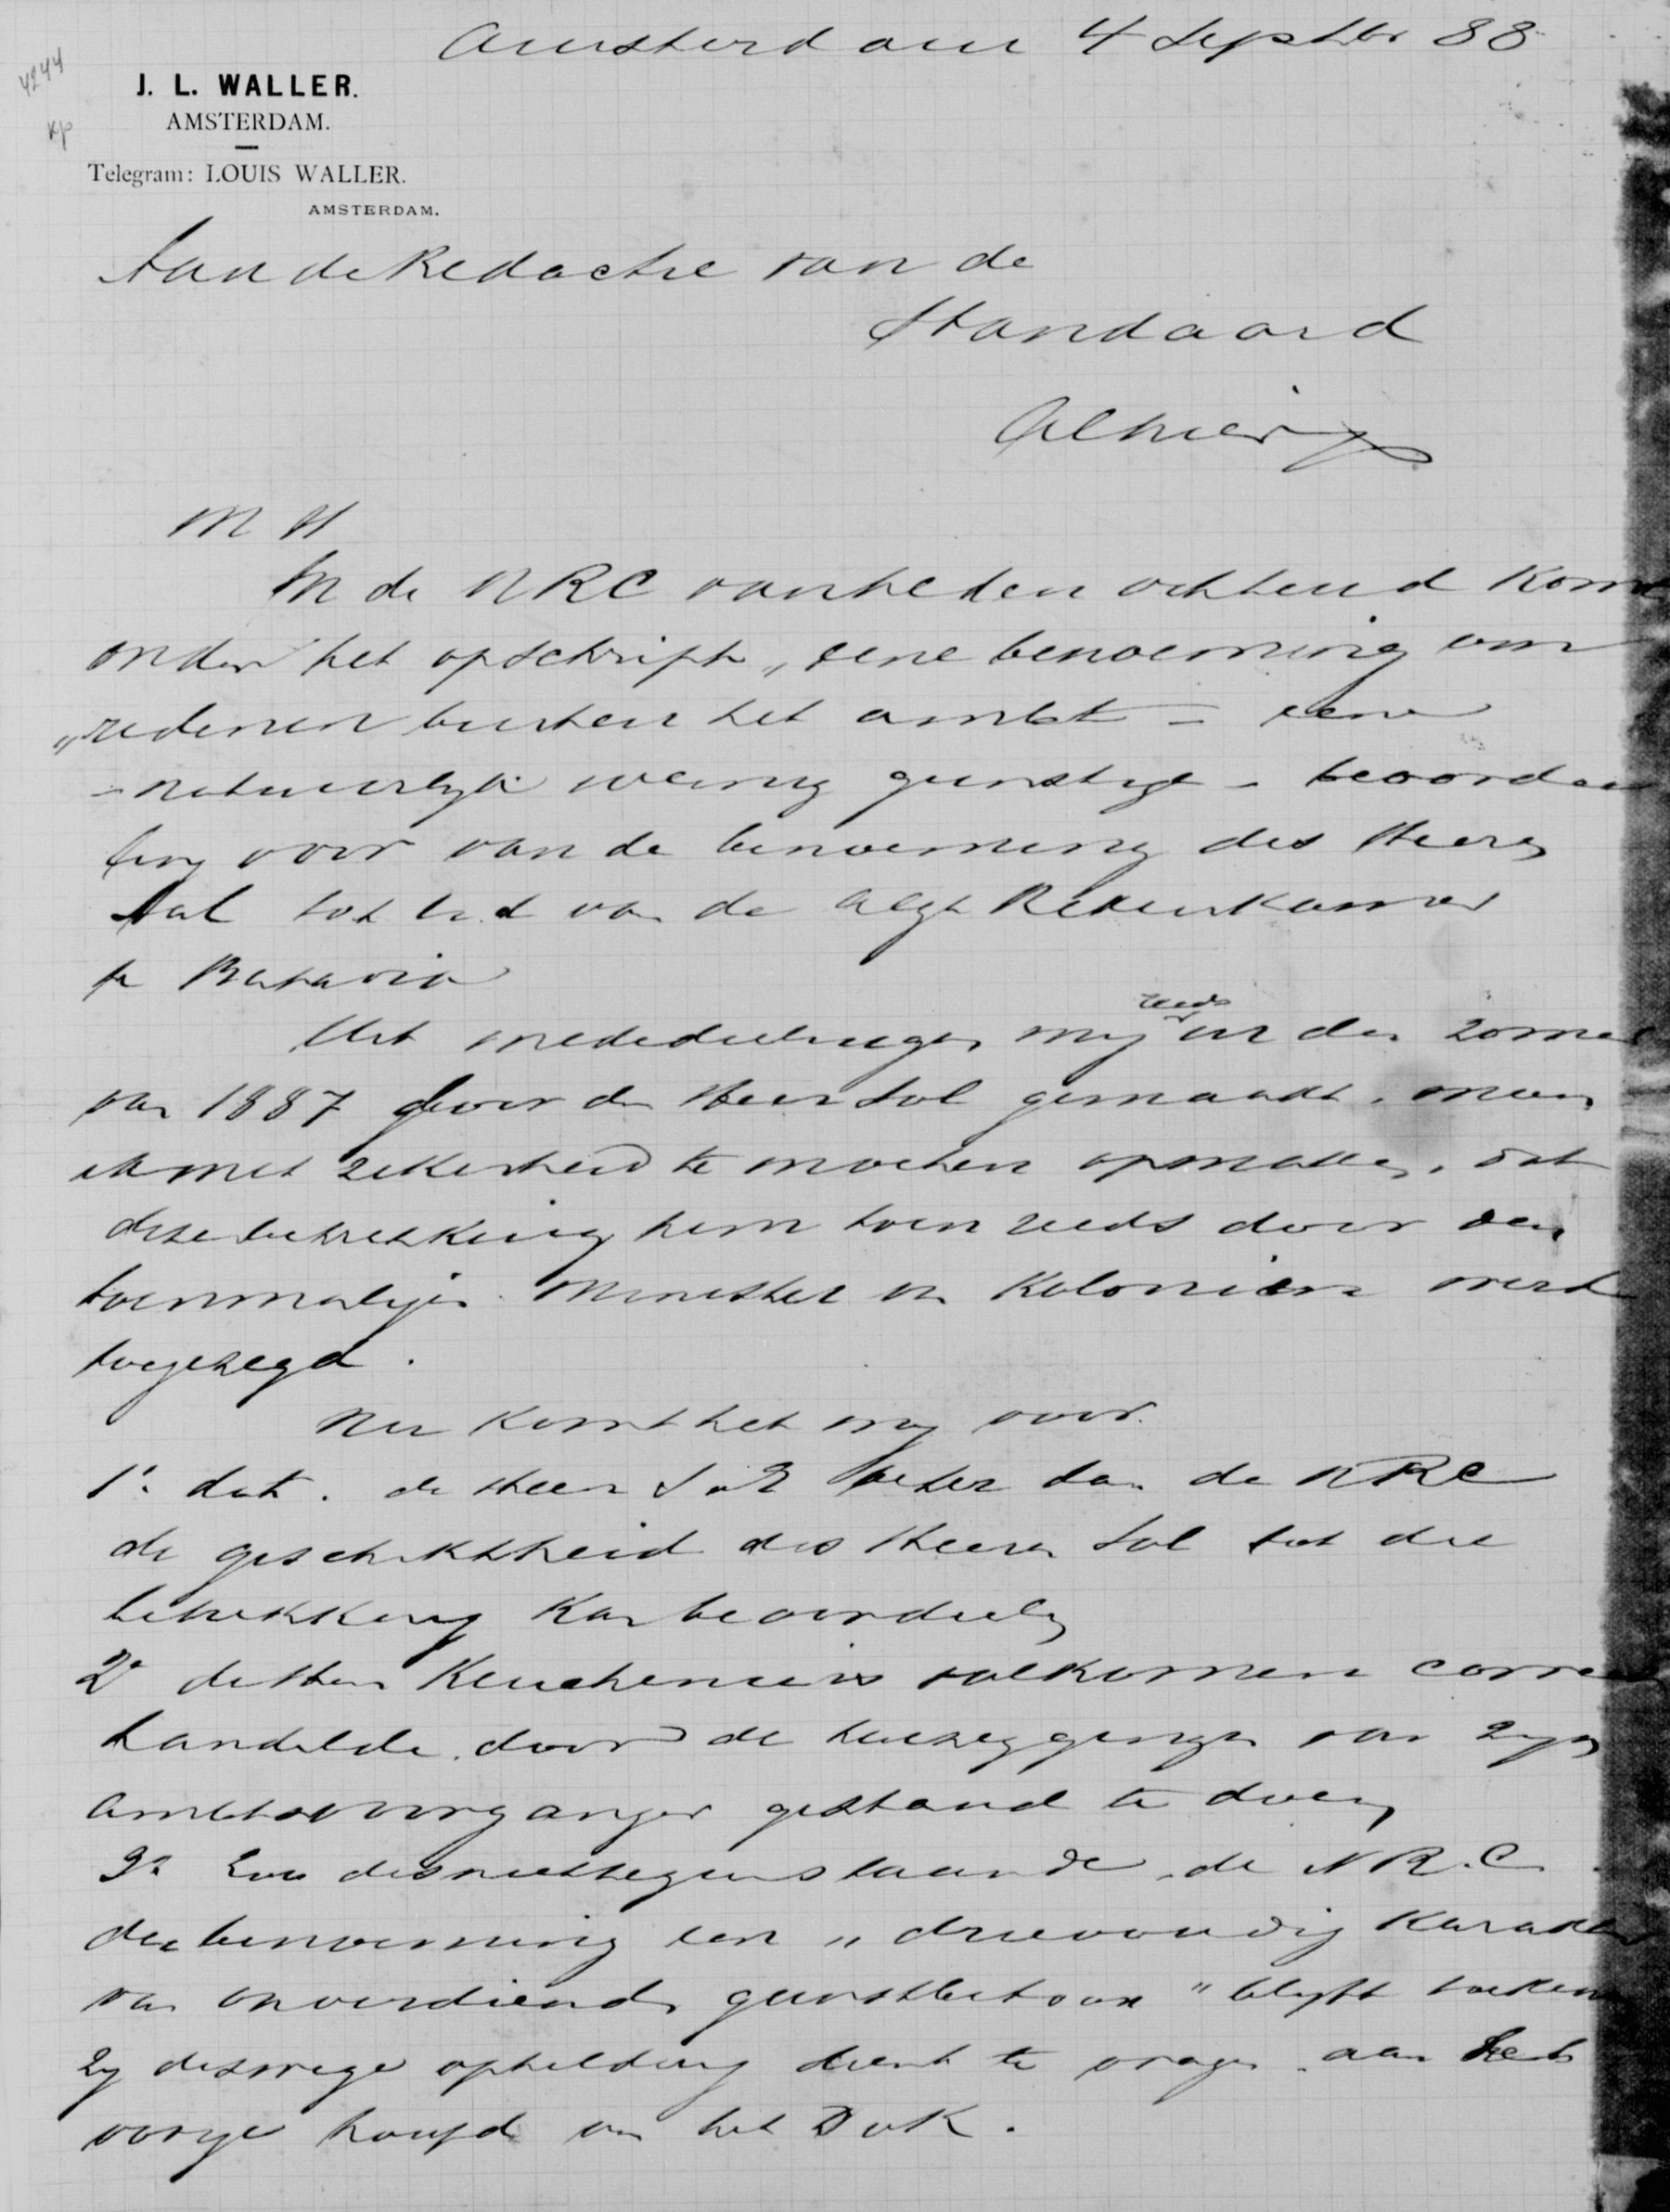 Amsterdam 4 Septbr 88
4244
Kp
J. L. WALLER.
AMSTERDAM.
Telegram: LOUIS WALLER.
AMSTERDAM.
Aan de Redactie van de
Standaard
Alhier
M H
In de NRC van heden ochtend komt
onder het opschrift „eene benoeming om
„redenen buiten het ambt – eene
– natuurlyk weinig gunstige – beoordee
ling voor van de benoeming des Heeren
Sol tot lid van de Algn Rekenkamer
te Batavia
Uit mededeelingen my reeds in den zomer
van 1887 door den Heer Sol gemaakt, meen
ik met zekerheid te mogen opmaken, dat
deze betrekking hem toen reeds door den
toenmaligen Minister v. Kolonien werd
toegezegd.
Nu komt het my voor.
1o. dat. de Heer beter dan de NRC
de geschiktheid des Heeren Sol tot die
betrekking kan beoordeelen
2o de Heer Keuchenius volkomen correct
handelde door de toezeggingen van zyn
ambtsvoorganger gestand te doen
3o Zoo desniettegenstaande de N R. C.
die benoeming een „drievoudig karakter
van onverdiend gunstbetoon" blyft toekennen
zy deswege opheldering dient te vragen aan het
vorige hoofd van het D v K.